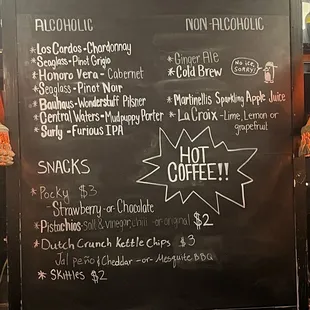 ALCOHOLIC
* Los Cardos - Chardonnay
* Seaglass - Pinot Grigio
* Honoro Vera - Cabernet
* Seaglass - Pinot Noir
* Bauhaus - Wonderstuff Pilsner
* Central Waters - Mudpuppy Porter
* Surly - Furious IPA
SNACKS
* Pocky $3
Strawberry -or- Chocolate
* Pistachios - salt & vinegar, chili -or- original $2
* Dutch Crunch Kettle Chips $3
Jalapeño & Cheddar -or- Mesquite BBQ
* Skittles $2
NON-ALCOHOLIC
* Ginger Ale
* Cold Brew
NO ICE,
SORRY!
* Martinellis Sparkling Apple Juice
* LaCroix - Lime, Lemon or
grapefruit
HOT
COFFEE!!